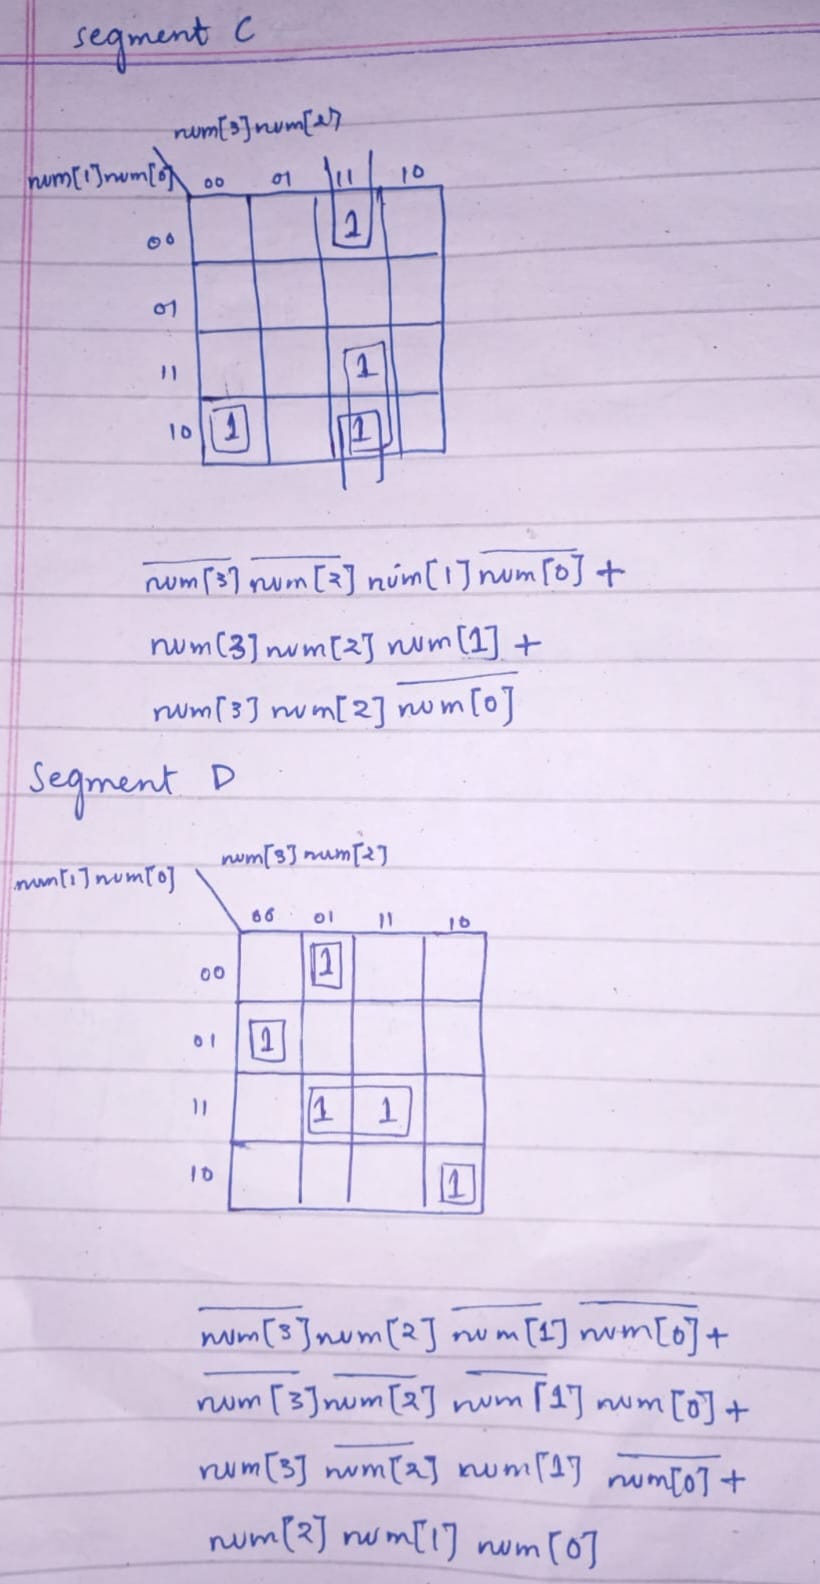 segment C
num[3]num[2]
num[1]num[0] 00 01 11 10
00 1
01
11 1
10 1 1
n̅u̅m̅[̅3̅]̅ n̅u̅m̅[̅2̅]̅ num[1] n̅u̅m̅[̅0̅]̅ +
num[3] num[2] num[1] +
num[3] num[2] n̅u̅m̅[̅0̅]̅
Segment D
num[3] num[2]
num[1] num[0]
00 01 11 10
00 1
01 1
11 1 1
10 1
n̅u̅m̅[̅3̅]̅ num[2] n̅u̅m̅[̅1̅]̅ n̅u̅m̅[̅0̅]̅ +
n̅u̅m̅[̅3̅]̅ n̅u̅m̅[̅2̅]̅ n̅u̅m̅[̅1̅]̅ num[0] +
num[3] n̅u̅m̅[̅2̅]̅ num[1] n̅u̅m̅[̅0̅]̅ +
num[2] num[1] num[0]